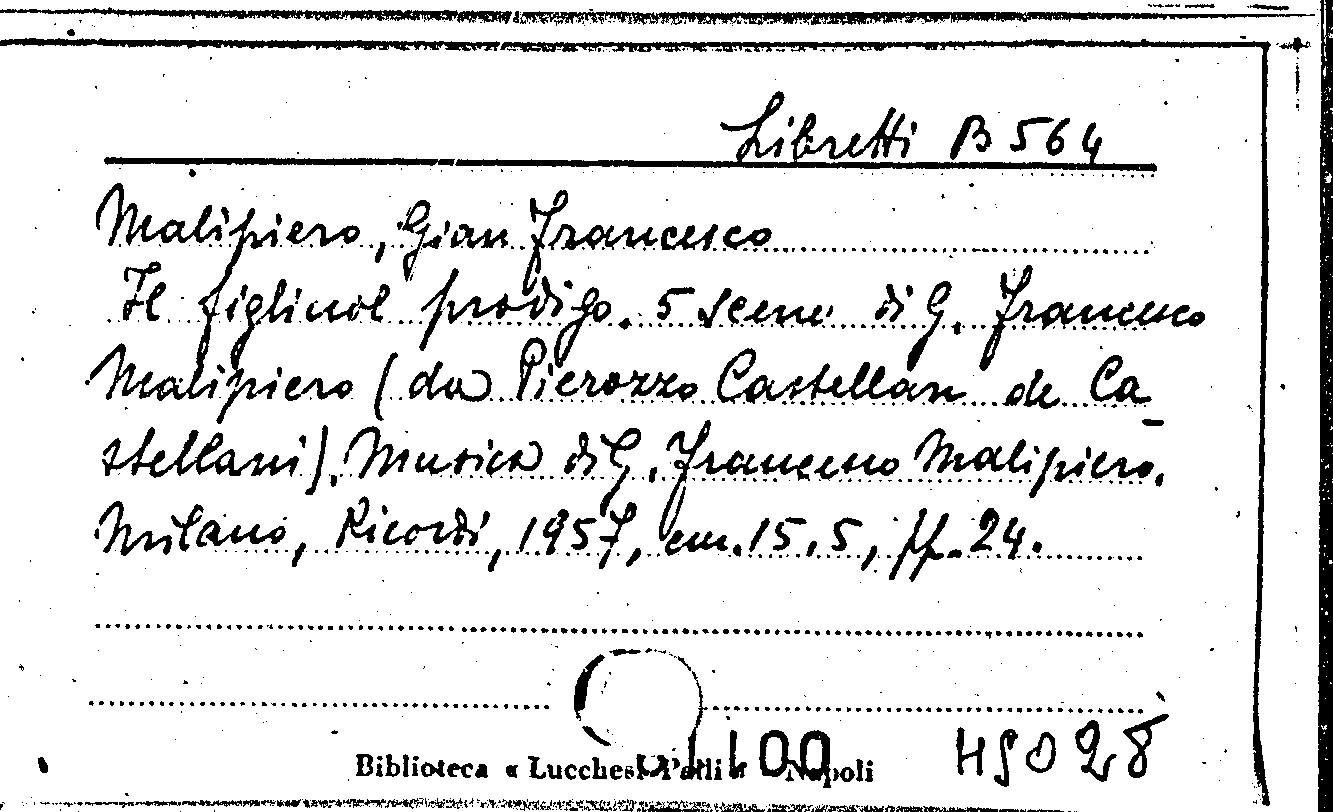 Libretti B 564
Malipiero, Gian Francesco
Il figliuol prodigo. 5 scene di G. Francesco
Malipiero (da Pierozzo Castellan de Ca-
stellani). Musica di G. Francesco Malipiero.
Milano, Ricordi, 1957, cm. 15,5, pp. 24.
Biblioteca « Lucchesi Palli » Napoli